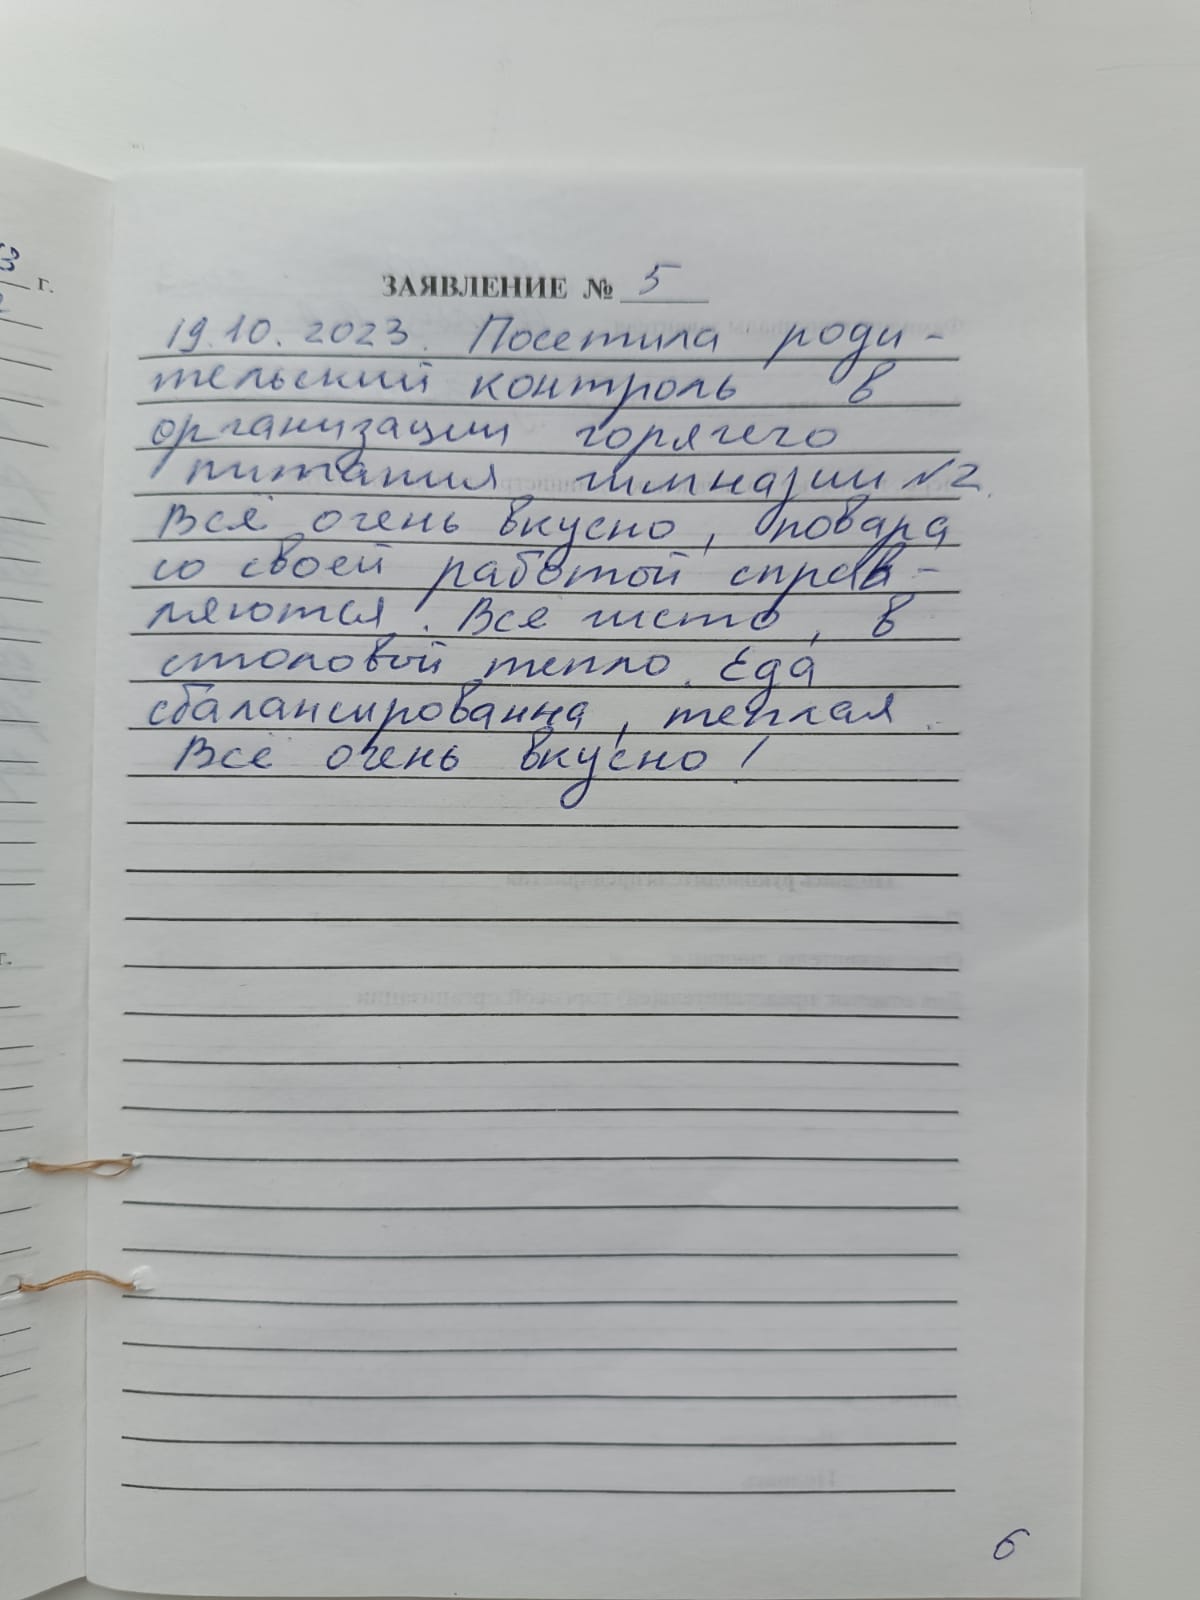 г.
ЗАЯВЛЕНИЕ № 5
19.10.2023. Посетила роди-
тельский контроль в
организации горячего
питания гимназии №2.
Всё очень вкусно, повара
со своей работой справ-
ляются. Все чисто, в
столовой тепло. Еда
сбалансированна, теплая.
Всё очень вкусно!
г.
6